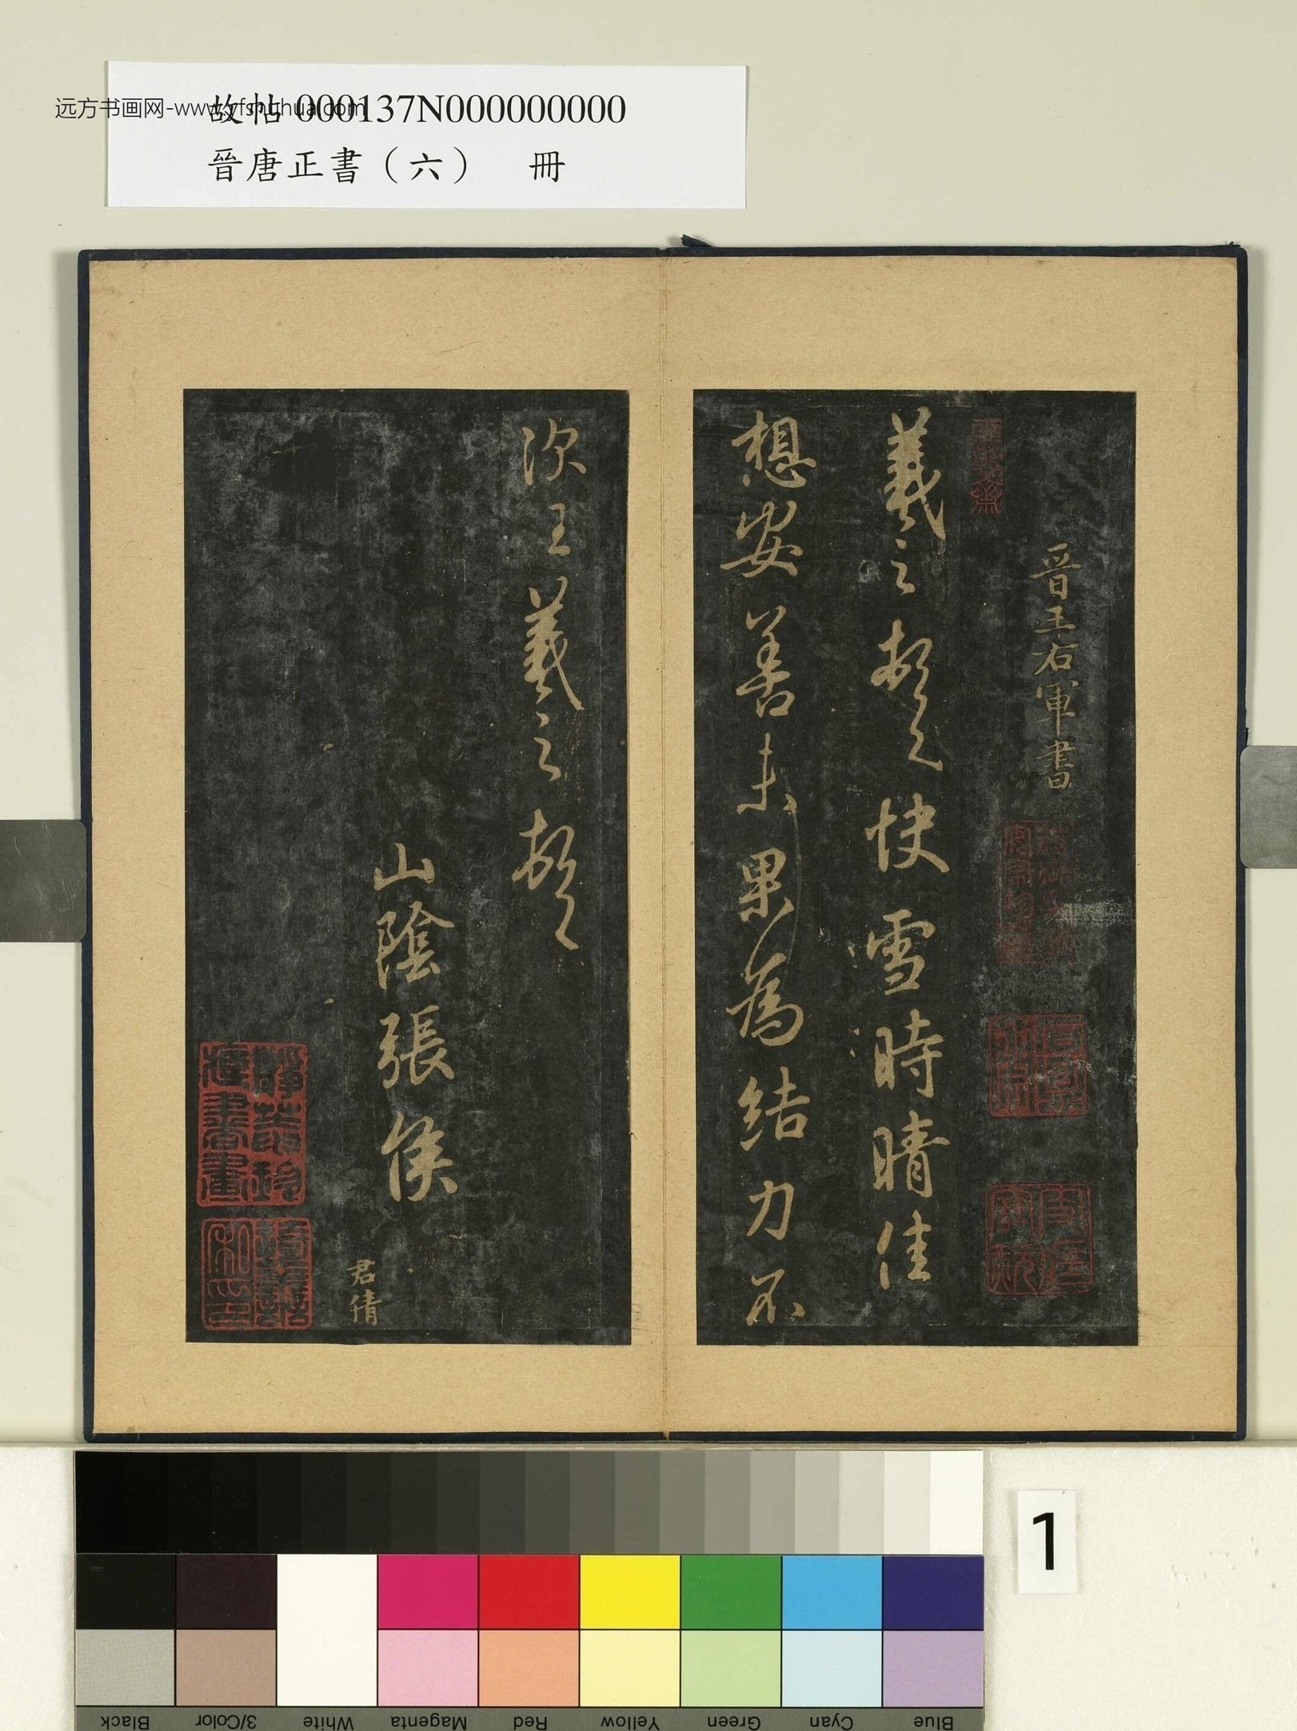 远方书画网-www.yfshuhua.com
故帖 000137N000000000
晉唐正書（六） 冊
晉王右軍書
羲之頓首快雪時晴佳
想安善未果為結力不
次王羲之頓首
山陰張侯
君倩
1
Black
3/Color
White
Magenta
Red
Yellow
Green
Cyan
Blue